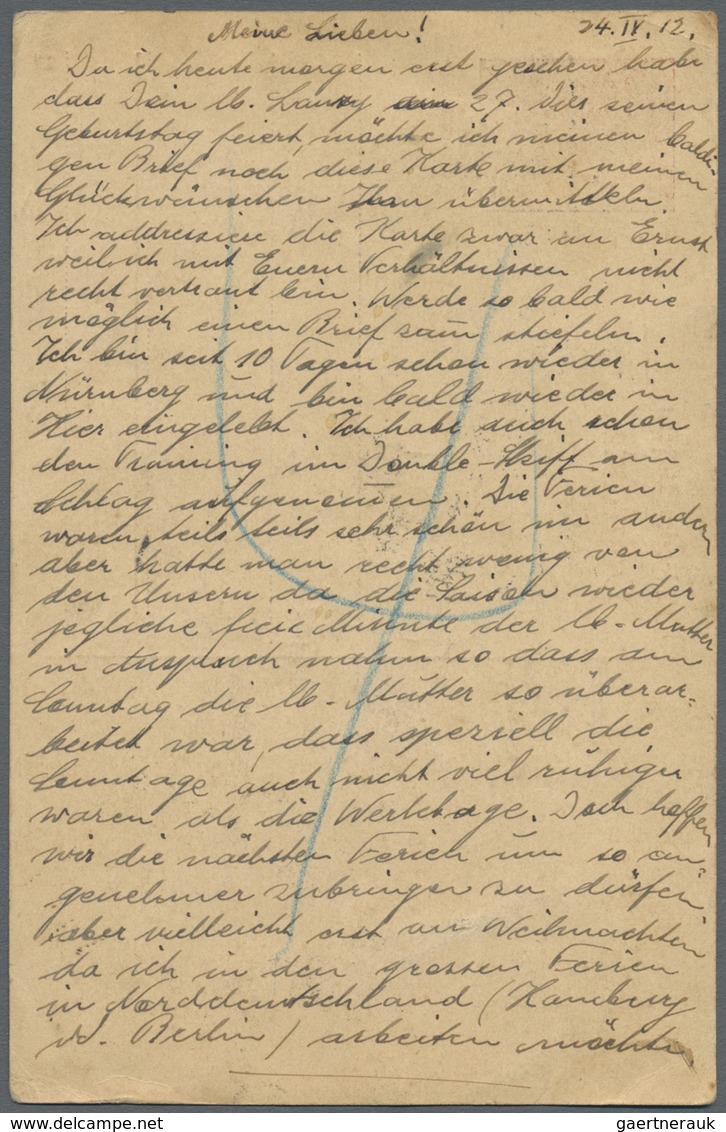 Meine Lieben! 24. IV. 12.
Da ich heute morgen erst gesehen habe
dass Dein lb. 27. dies seinen
Geburtstag feiert, möchte ich meinen baldi-
gen Brief noch diese Karte mit meinen
Glückwünschen übermitteln.
Ich addressiere die Karte zwar an Ernst
weil ich mit Euern Verhältnissen nicht
recht vertraut bin. Werde so bald wie
möglich einen Brief zum stiefeln.
Ich bin seit 10 Tagen schon wieder in
Nürnberg und bin bald wieder in
Hier eingelebt. Ich habe auch schon
den Training im Double-Skiff am
Schlag aufgenommen. Die Ferien
waren teils teils sehr schön im andern
aber hatte man recht wenig von
den Unsern da die Saison wieder
jegliche freie Minute der lb. Mutter
in Anspruch nahm so dass am
Sonntag die lb. Mutter so überar-
beitet war, dass speziell die
Sonntage auch nicht viel ruhiger
waren als die Werktage. Doch hoffen
wir die nächsten Ferien um so an-
genehmer zubringen zu dürfen,
aber vielleicht erst an Weihnachten
da ich in den grossen Ferien
in Norddeutschland (Hamburg
od. Berlin) arbeiten möchte.
gaertnerauk